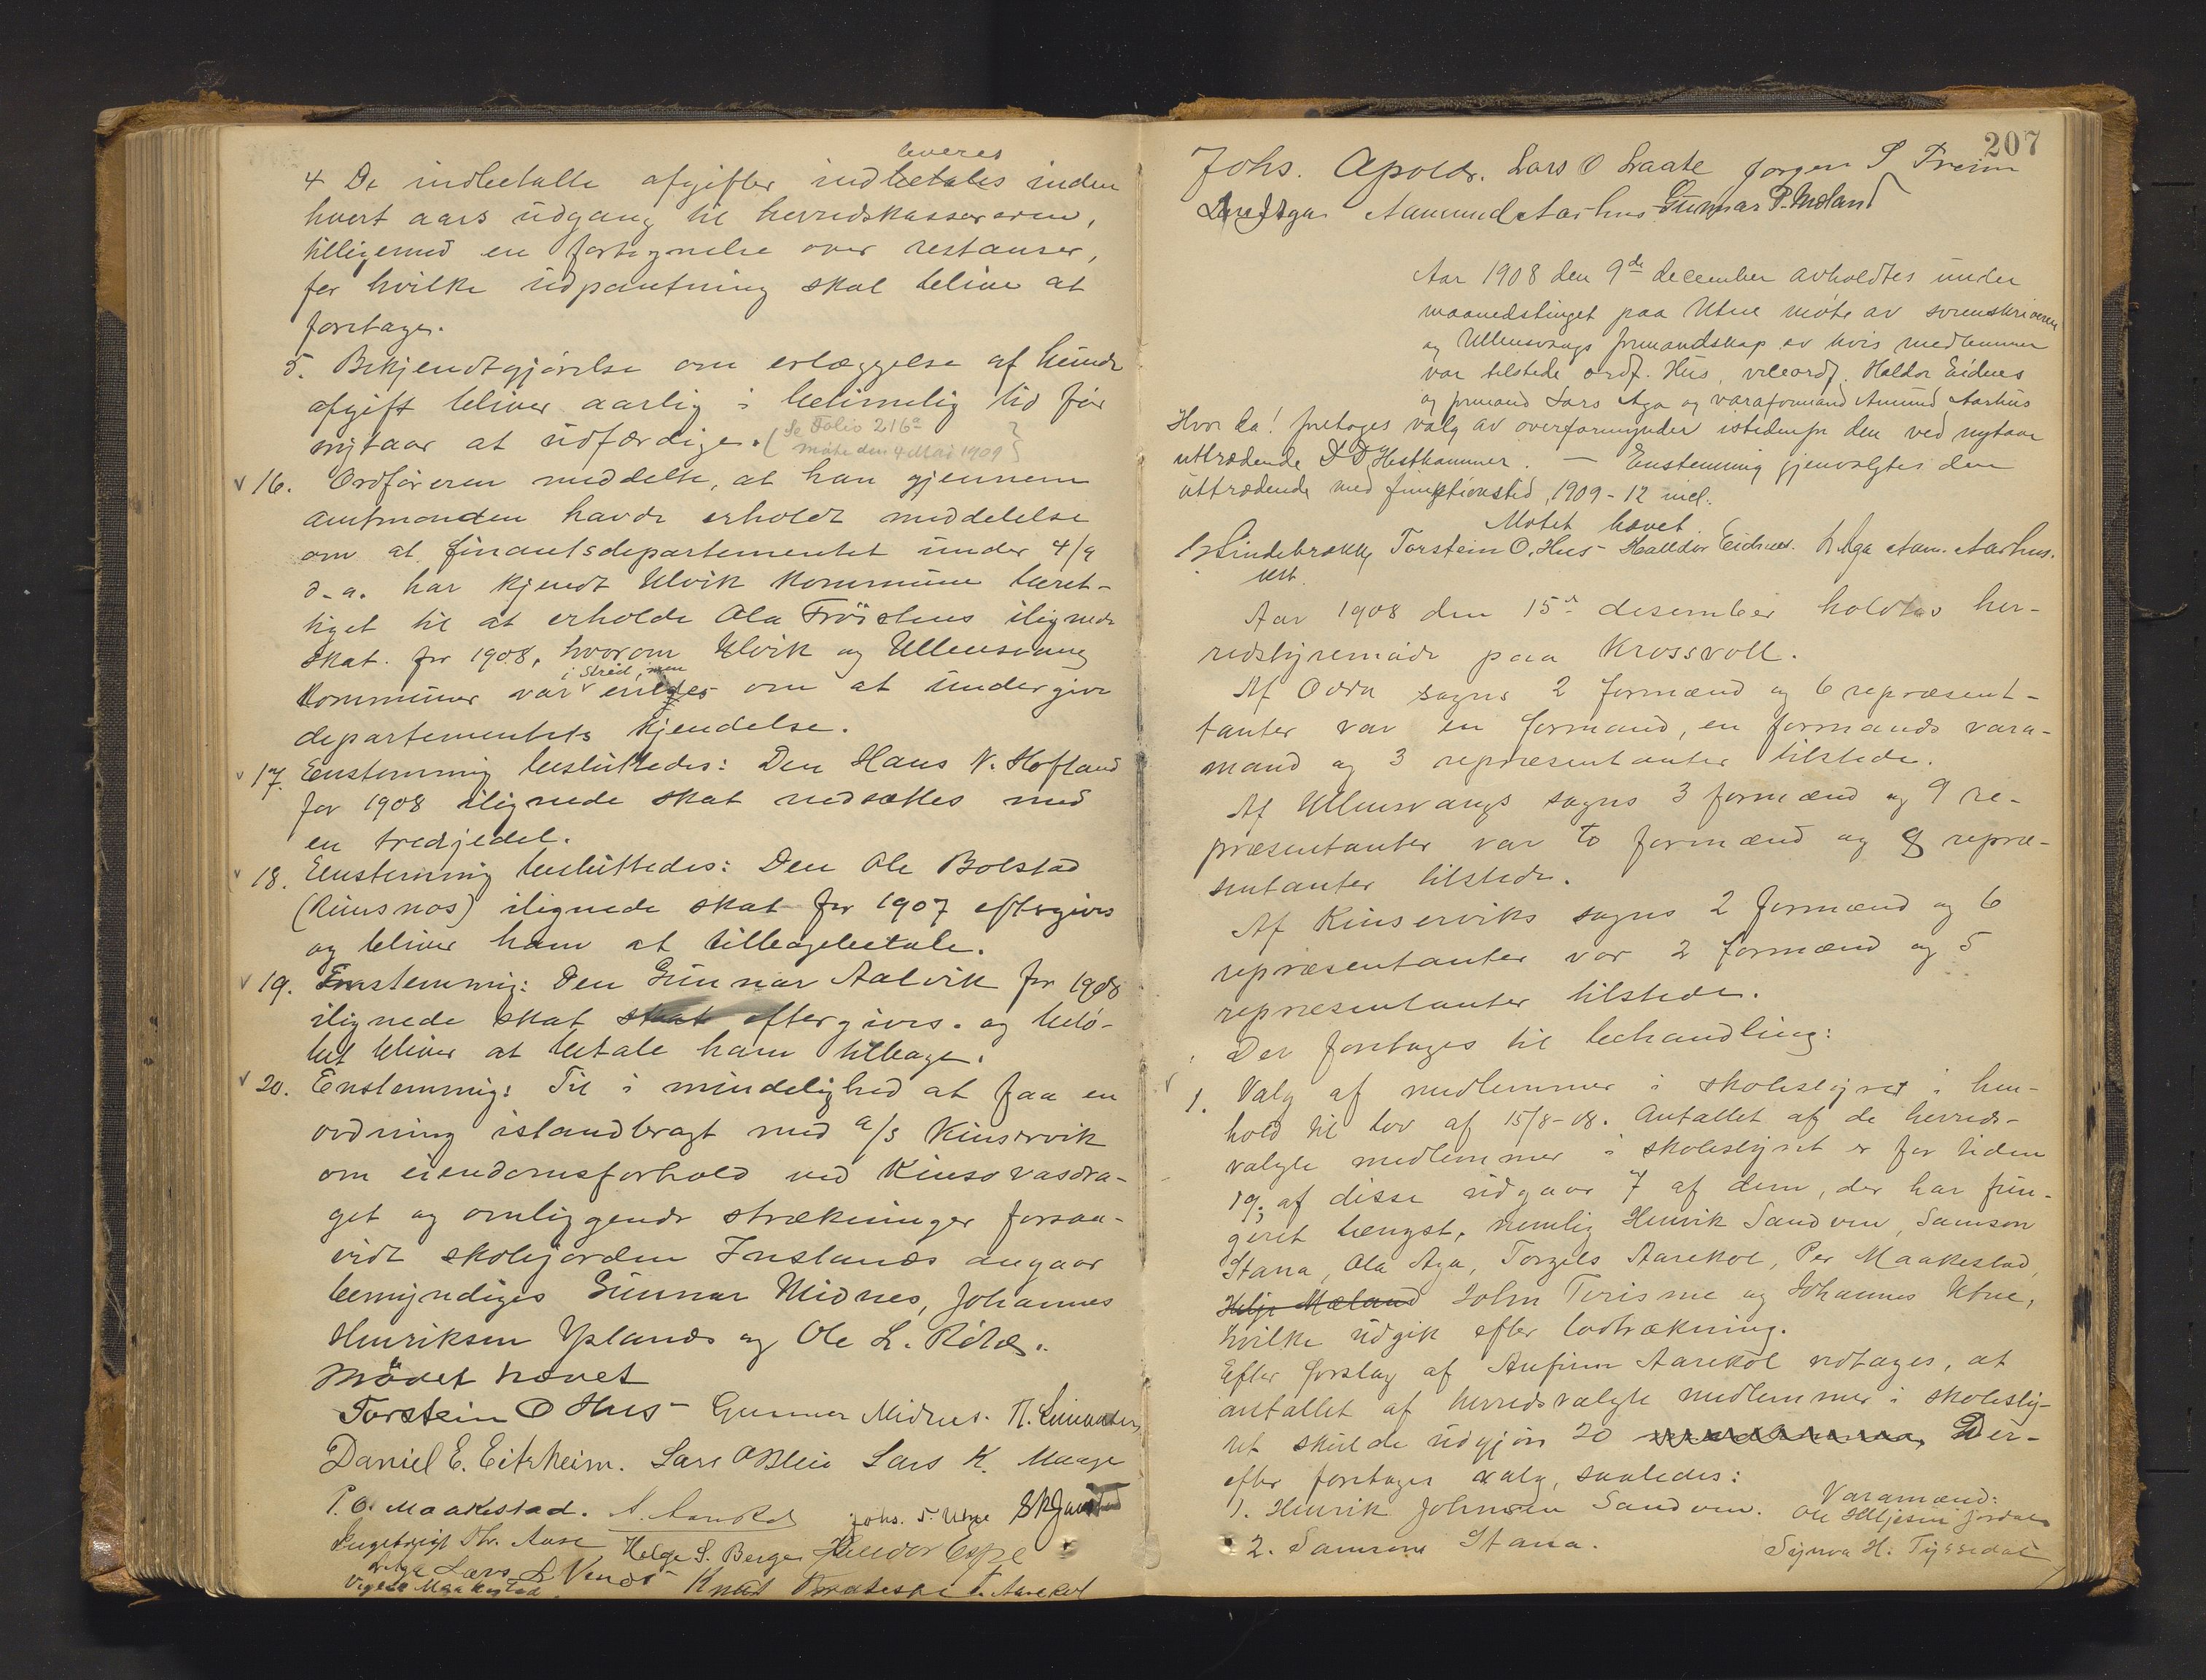 4 De indbetalte afgifter indbetales inden
leveres
hvert aars udgang til herredskassereren,
tilligemed en fortegnelse over restanser,
for hvilke udpantning skal bliver at
foretage.
5. Bekjendtgjörelse om erlæggelse af hunde
afgift bliver aarlig i betimelig tid för
nytaar at udfærdige. (Se Folio 216a
Møte den 4 Mai 1909)
v 16. Ordföreren meddelte, at han gjennem
amtmanden havde erholdt meddelelse
om at finantsdepartementet under 4/9
d.a. har kjendt Ulvik kommune beret-
tiget til at erholde Ola Fröstens ilignede
skat for 1908, hvorom Ulvik og Ullensvang
i Strid, men
kommuner var eniges om at undergive
departementets kjendelse.
v 17. Eenstemmig besluttedes: Den Hans N. Hofland
for 1908 ilignede skat nedsættes med
en tredjedel.
v 18. Eenstemmig besluttedes: Den Ole Bolstad
(Röisnos) ilignede skat for 1907 eftergives
og bliver ham at tilbagebetale.
v 19. Enstemmig: Den Gunnar Aalvik for 1908
ilignede skat skat eftergives. og belö-
bet bliver at betale ham tilbage.
v 20. Enstemmig: Til i mindelighed at faa en
ordning istandbragt med a/s Kinservik
om eiendomsforhold ved Kinsovasdra-
get og omliggende strækninger forsaa-
vidt skolejorden Instanæs angaar
bemyndiges Gunnar Midnes, Johannes
Henriksen Ystanæs og Ole L. Röte.
Mödet hævet
Torstein O Hus - Gunnar Midnes.
Daniel E. Eitrheim. Lars O Blei Lars K. Maage
P. O. Maakestad. Johs. T. Utne
Ingebrigt Th. Aase Helge S. Berge Halldor Espe
L. Aga Lars L. Vendö Knut T. Aarekol
Vigleik Maakestad
207
Johs. Apold. Lars O Laate Jørgen S Freim
Lars Aga Aamund Aarhus Gunnar P. Meland
Aar 1908 den 9de december avholdtes under
maanedstinget paa Utne møte av sorenskriveren
og Ullensvangs formandskap av hvis medlemmer
var tilstede ordf. Hus, viceordf. Haldor Eidnes
og formand Lars Aga og varaformand Amund Aarhus
Hvor da! foretoges valg av overformynder istedenfor den ved nytaar
uttrædende D D Hesthammer. — Enstemmig gjenvalgtes den
uttrædende med funktionstid 1909-12 incl.
Møtet hævet.
Lindebrække Torstein O. Hus - Halldor Eidnes. L Aga Aam. Aarhus.
Aar 1908 den 15de desember holdtes her-
redstyremöde paa Krossvoll.
Af Odda sogns 2 formænd og 6 repræsent-
tanter var en formand, en formands vara-
mand og 3 repræsentanter tilstede.
Af Ullensvangs sogns 3 formænd og 9 re-
præsentanter var to formænd og 8 repræ-
sentanter tilstede.
Af Kinserviks sogns 2 formænd og 6
repræsentanter var 2 formænd og 5
repræsentanter tilstede.
Der foretoges til behandling:
v 1. Valg af medlemmer i skolestyret i hen-
hold til lov af 15/8-08. Antallet af de herreds-
valgte medlemmer i skolestyret er for tiden
19; af disse udgaar 7 af dem, der har fun-
geret længst, nemlig Henrik Sandven, Samson
Stana, Ola Aga, Torgils Aarekol, Per Maakestad,
Helje Mæland John Terisme og Johannes Utne,
hvilke udgik efter lodtrækning.
Efter forslag af Anfinn Aarekol vedtages, at
antallet af herredsvalgte medlemmer i skolesty-
ret skulde udgjöre 20 Der-
efter foretoges valg, saaledes:
Varamænd:
1. Henrik Johnsen Sandven. Ole Heljesen Jordal
2. Samson Stana. Synva H. Tyssedal